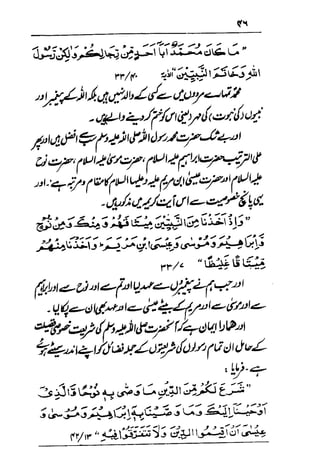 ۴۶
"مَا كَانَ مُحَمَّدٌ اَبَا اَحَدٍ مِّنْ رِّجَالِكُمْ وَلٰكِنْ رَّسُوْلَ
اللهِ وَخَاتَمَ النَّبِيِّيْنَ" الآیۃ ۳۳/۴۰
محمد تمہارے مردوں میں سے کسی کے والد نہیں ہیں بلکہ اللہ کے پیغمبر اور
نبیوں (کی نبوت) کی مہر (یعنی اس کو ختم کر دینے والے) ہیں۔
اور بے شک حضرت محمد رسول اللہ صلی اللہ علیہ وسلم سب سے افضل ہیں اور پھر
علی الترتیب حضرت ابراہیم علیہ السلام، حضرت موسیٰ علیہ السلام، حضرت نوح
علیہ السلام اور حضرت عیسیٰ ابن مریم علیہ وعلیہا السلام کا مقام و مرتبہ ہے۔ اور
یہی پانچ خصوصیت سے اس آیت کریمہ میں مذکور ہیں۔
"وَاِذْ اَخَذْنَا مِنَ النَّبِيِّيْنَ مِيْثَاقَهُمْ وَمِنْكَ وَمِنْ نُّوْحٍ
وَّاِبْرَاهِيْمَ وَمُوْسٰى وَعِيْسَى ابْنِ مَرْيَمَ وَاَخَذْنَا مِنْهُمْ
مِّيْثَاقًا غَلِيْظًا" ۳۳/۷
اور جب ہم نے پیغمبروں سے عہد لیا اور تم سے اور نوح سے اور ابراہیم
سے اور موسیٰ سے اور مریم کے بیٹے عیسیٰ سے اور عہد بھی ان سے پکا لیا۔
اور ہمارا ایمان ہے کہ آنحضرت صلی اللہ علیہ وسلم کی شریعت خصوصی فضیلت
کے حامل ان تمام رسولوں کی شریعتوں کے جملہ فضائل کو اپنے اندر سمیٹے ہوئے
ہے۔ فرمایا:
"شَرَعَ لَكُمْ مِّنَ الدِّيْنِ مَا وَصّٰى بِهٖ نُوْحًا وَّالَّذِيْ
اَوْحَيْنَا اِلَيْكَ وَمَا وَصَّيْنَا بِهٖ اِبْرَاهِيْمَ وَمُوْسٰى وَ
عِيْسٰى اَنْ اَقِيْمُوا الدِّيْنَ وَلَا تَتَفَرَّقُوْا فِيْهِ" ۴۲/۱۳